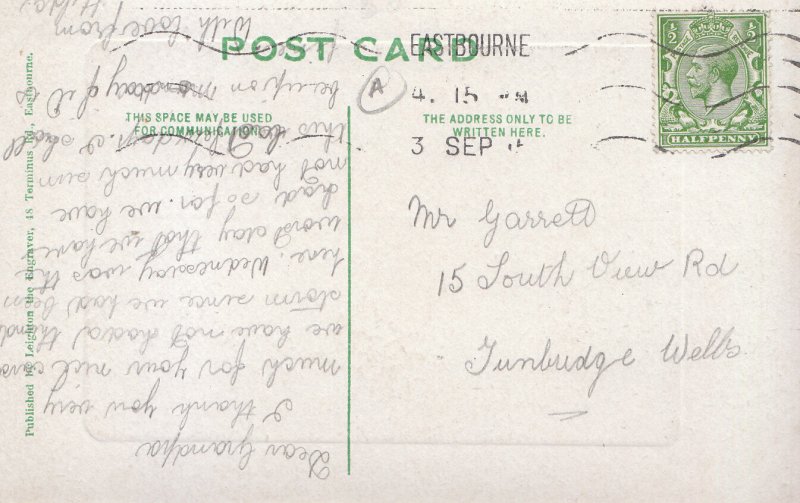 POST CARD
EASTBOURNE
4. 15 PM
3 SEP
HALFPENNY
A
THIS SPACE MAY BE USED
FOR COMMUNICATION.
THE ADDRESS ONLY TO BE
WRITTEN HERE.
Published by Leighton the Engraver, 48 Terminus Rd., Eastbourne.
Mr Garrett
15 South View Rd
Tunbridge Wells
Dear Grandpa
I thank you very
much for your nice card
we have not had a
storm since we had been
here. Wednesday was the
worst day that we have
had so far. we have
not had very much sun
this I shall
be up on
With love from